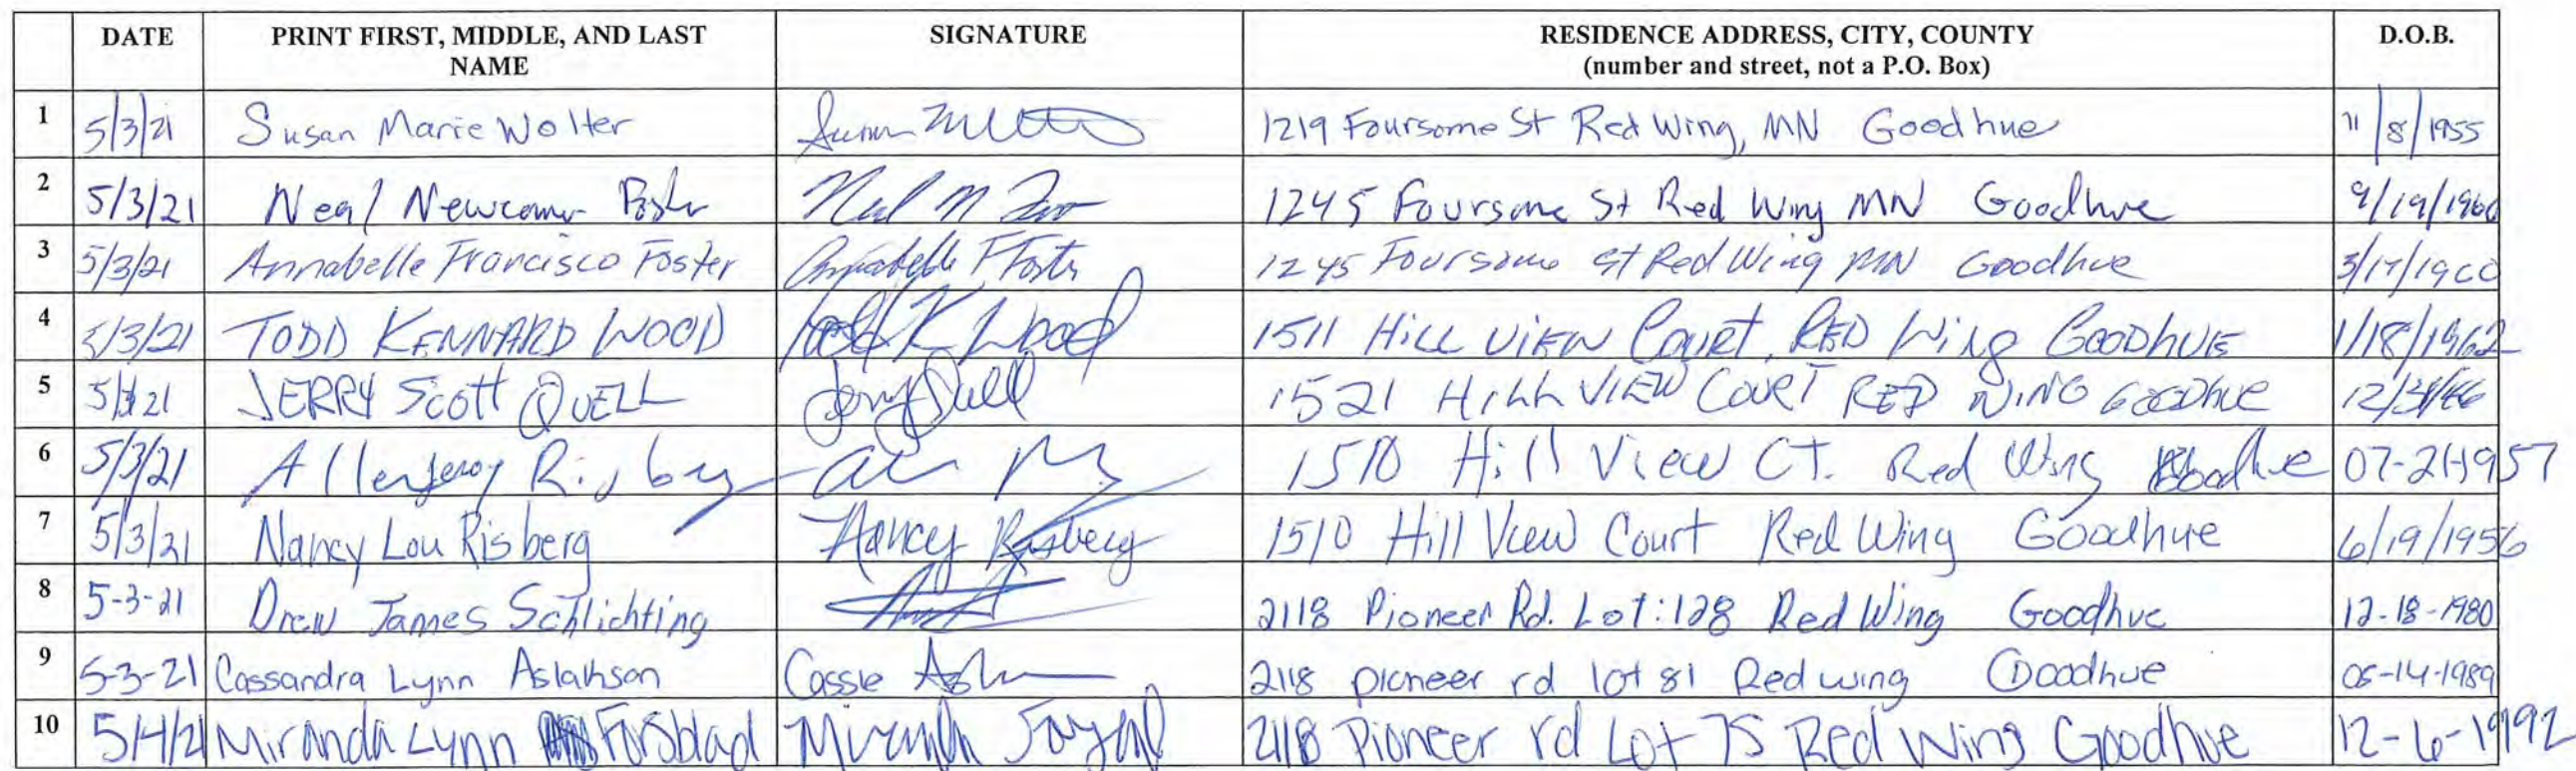 DATE PRINT FIRST, MIDDLE, AND LAST NAME SIGNATURE RESIDENCE ADDRESS, CITY, COUNTY (number and street, not a P.O. Box) D.O.B.
1 5/3/21 Susan Marie Wolter 1219 Foursome St Red Wing, MN Goodhue 11/8/1955
2 5/3/21 Neal Newcomer Foster 1245 Foursome St Red Wing MN Goodhue 9/19/1960
3 5/3/21 Annabelle Francisco Foster Annabelle F Foster 1245 Foursome St Red Wing MN Goodhue
4 5/3/21 TODD KENNARD WOOD Todd K Wood 1511 HILL VIEW Court, RED Wing GOODHUE 1/18/1962
5 JERRY Scott QUELL Jerry Quell 1521 HILL VIEW COURT RED WING GOODHUE
6 5/3/21 1510 Hill View CT. Red Wing Goodhue 07-21-1957
7 5/3/21 Nancy Lou Risberg Nancy Risberg 1510 Hill View Court Red Wing Goodhue 6/19/1956
8 5-3-21 Drew James Schlichting 2118 Pioneer Rd. Lot:128 Red Wing Goodhue 12-18-1980
9 5-3-21 Cassandra Lynn Aslakson Cassie 2118 pioneer rd lot 81 Red wing Goodhue
10 5/4/21 Miranda Lynn Forsblad 2118 Pioneer rd Lot 75 Red Wing Goodhue 12-6-1992